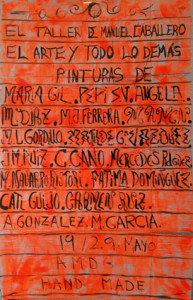 EL TALLER DE MANUEL CABALLERO
EL ARTE Y TODO LO DEMÁS
PINTURAS DE
MARIA GIL. PEPI SV. ANGELA
M. DIAZ. M. J. FERRERA.
M. L. GORDILLO.
J. M. RUIZ. C. CANO. MERCEDES
FATIMA DOMINGUEZ.
CATI GUIJO. CARMEN RUIZ.
A GONZALEZ. M. GARCIA.
19/29. MAYO
AMD.
HAND MADE